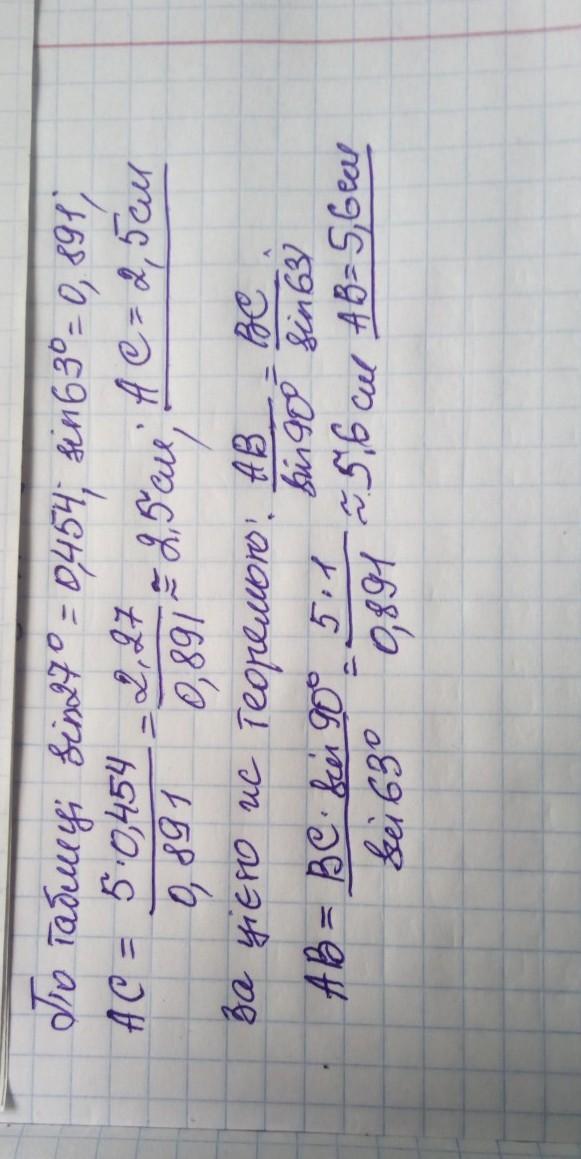 По таблиці sin27° = 0,454; sin63° = 0,891;
AC = 5·0,454 / 0,891 = 2,27 / 0,891 ≈ 2,5см; AC = 2,5см
За цією ж теоремою: AB / sin90° = BC / sin63;
AB = BC · sin90° / sin63° = 5·1 / 0,891 ≈ 5,6 см AB = 5,6см